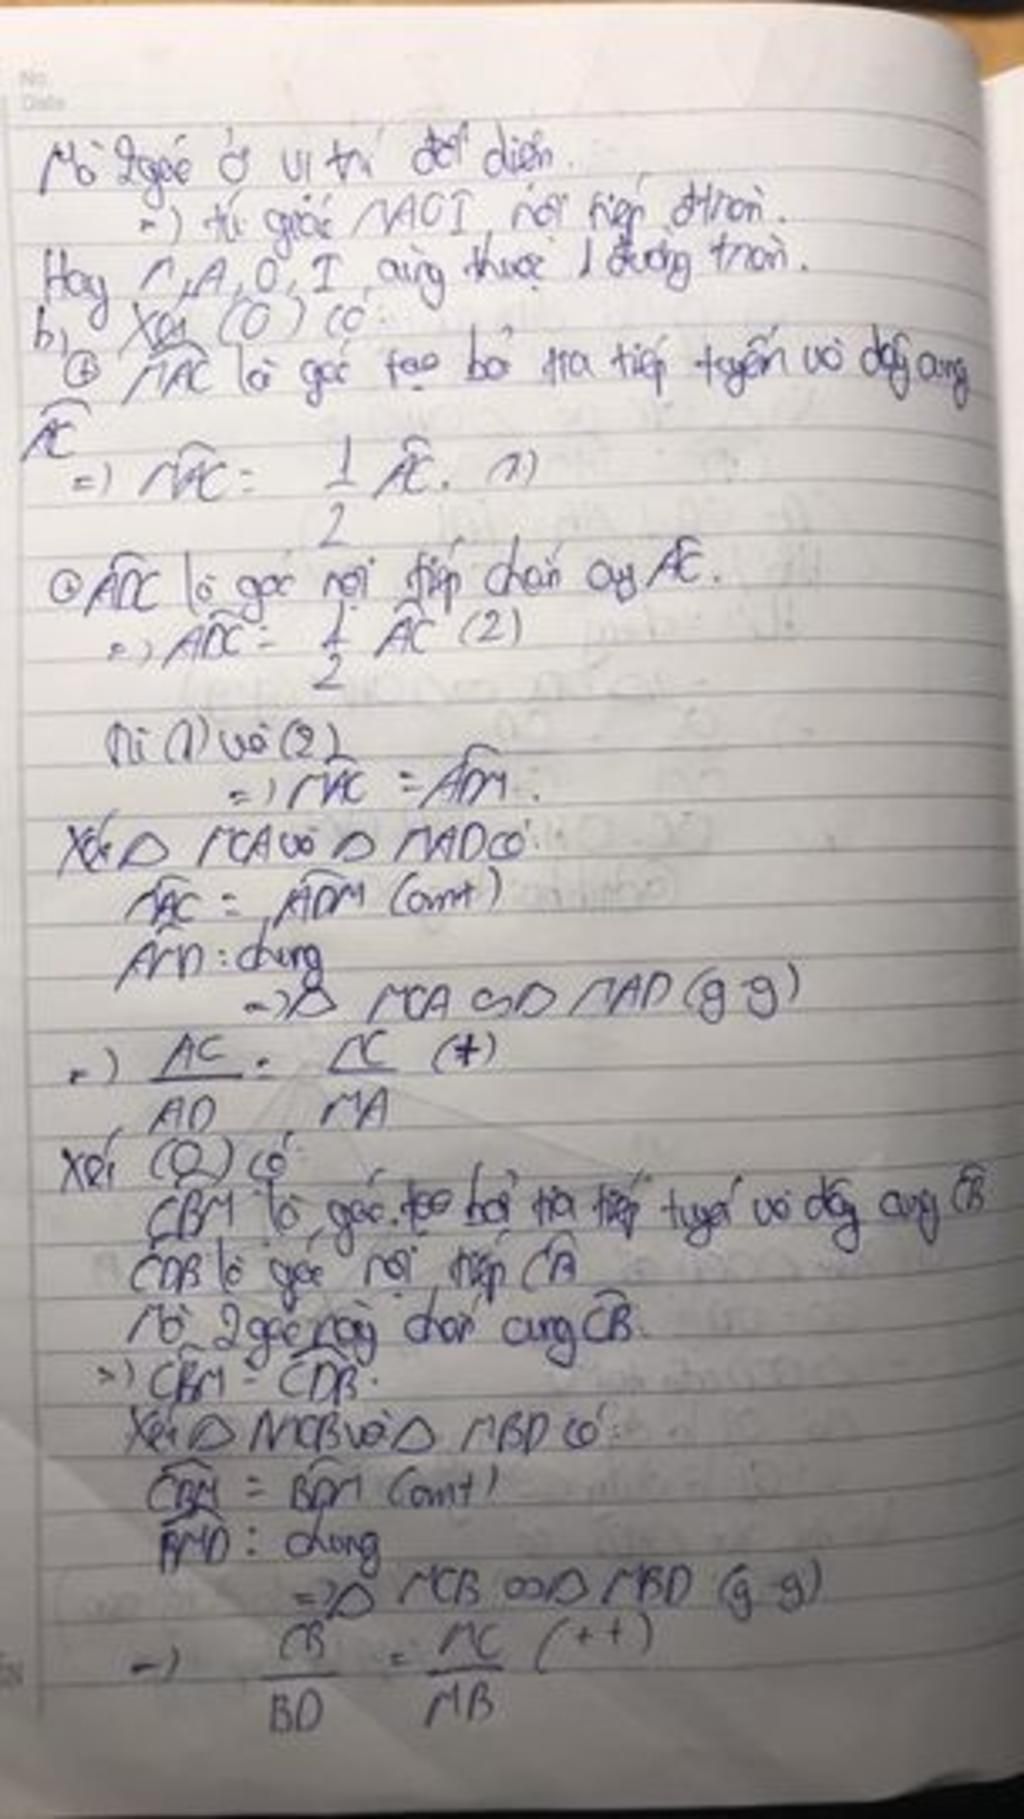 No.
Date
Mà 2 góc ở vị trí đối diện.
=) tứ giác MAOI nội tiếp đtròn.
Hay M, A, O, I cùng thuộc 1 đường tròn.
b, Xét (O) có:
+ MAC là góc tạo bởi tia tiếp tuyến và dây cung
AC
=) MAC = 1/2 AC. (1)
+ ADC là góc nội tiếp chắn cung AC.
=) ADC = 1/2 AC (2)
Từ (1) và (2)
=) MAC = ADM.
Xét △ MCA và △ MAD có:
MAC = ADM (cmt)
AMD : chung
=) △ MCA ∽ △ MAD (g-g)
=) AC/AD = MC/MA (*)
Xét (O) có:
CBM là góc tạo bởi tia tiếp tuyế và dây cung CB
CDB là góc nội tiếp CB
Mà 2 góc này chắn cung CB.
=) CBM = CDB.
Xét △ MCB và △ MBD có:
CBM = BDM (cmt)
BMD : chung
=) △ MCB ∽ △ MBD (g-g)
=) CB/BD = MC/MB (**)